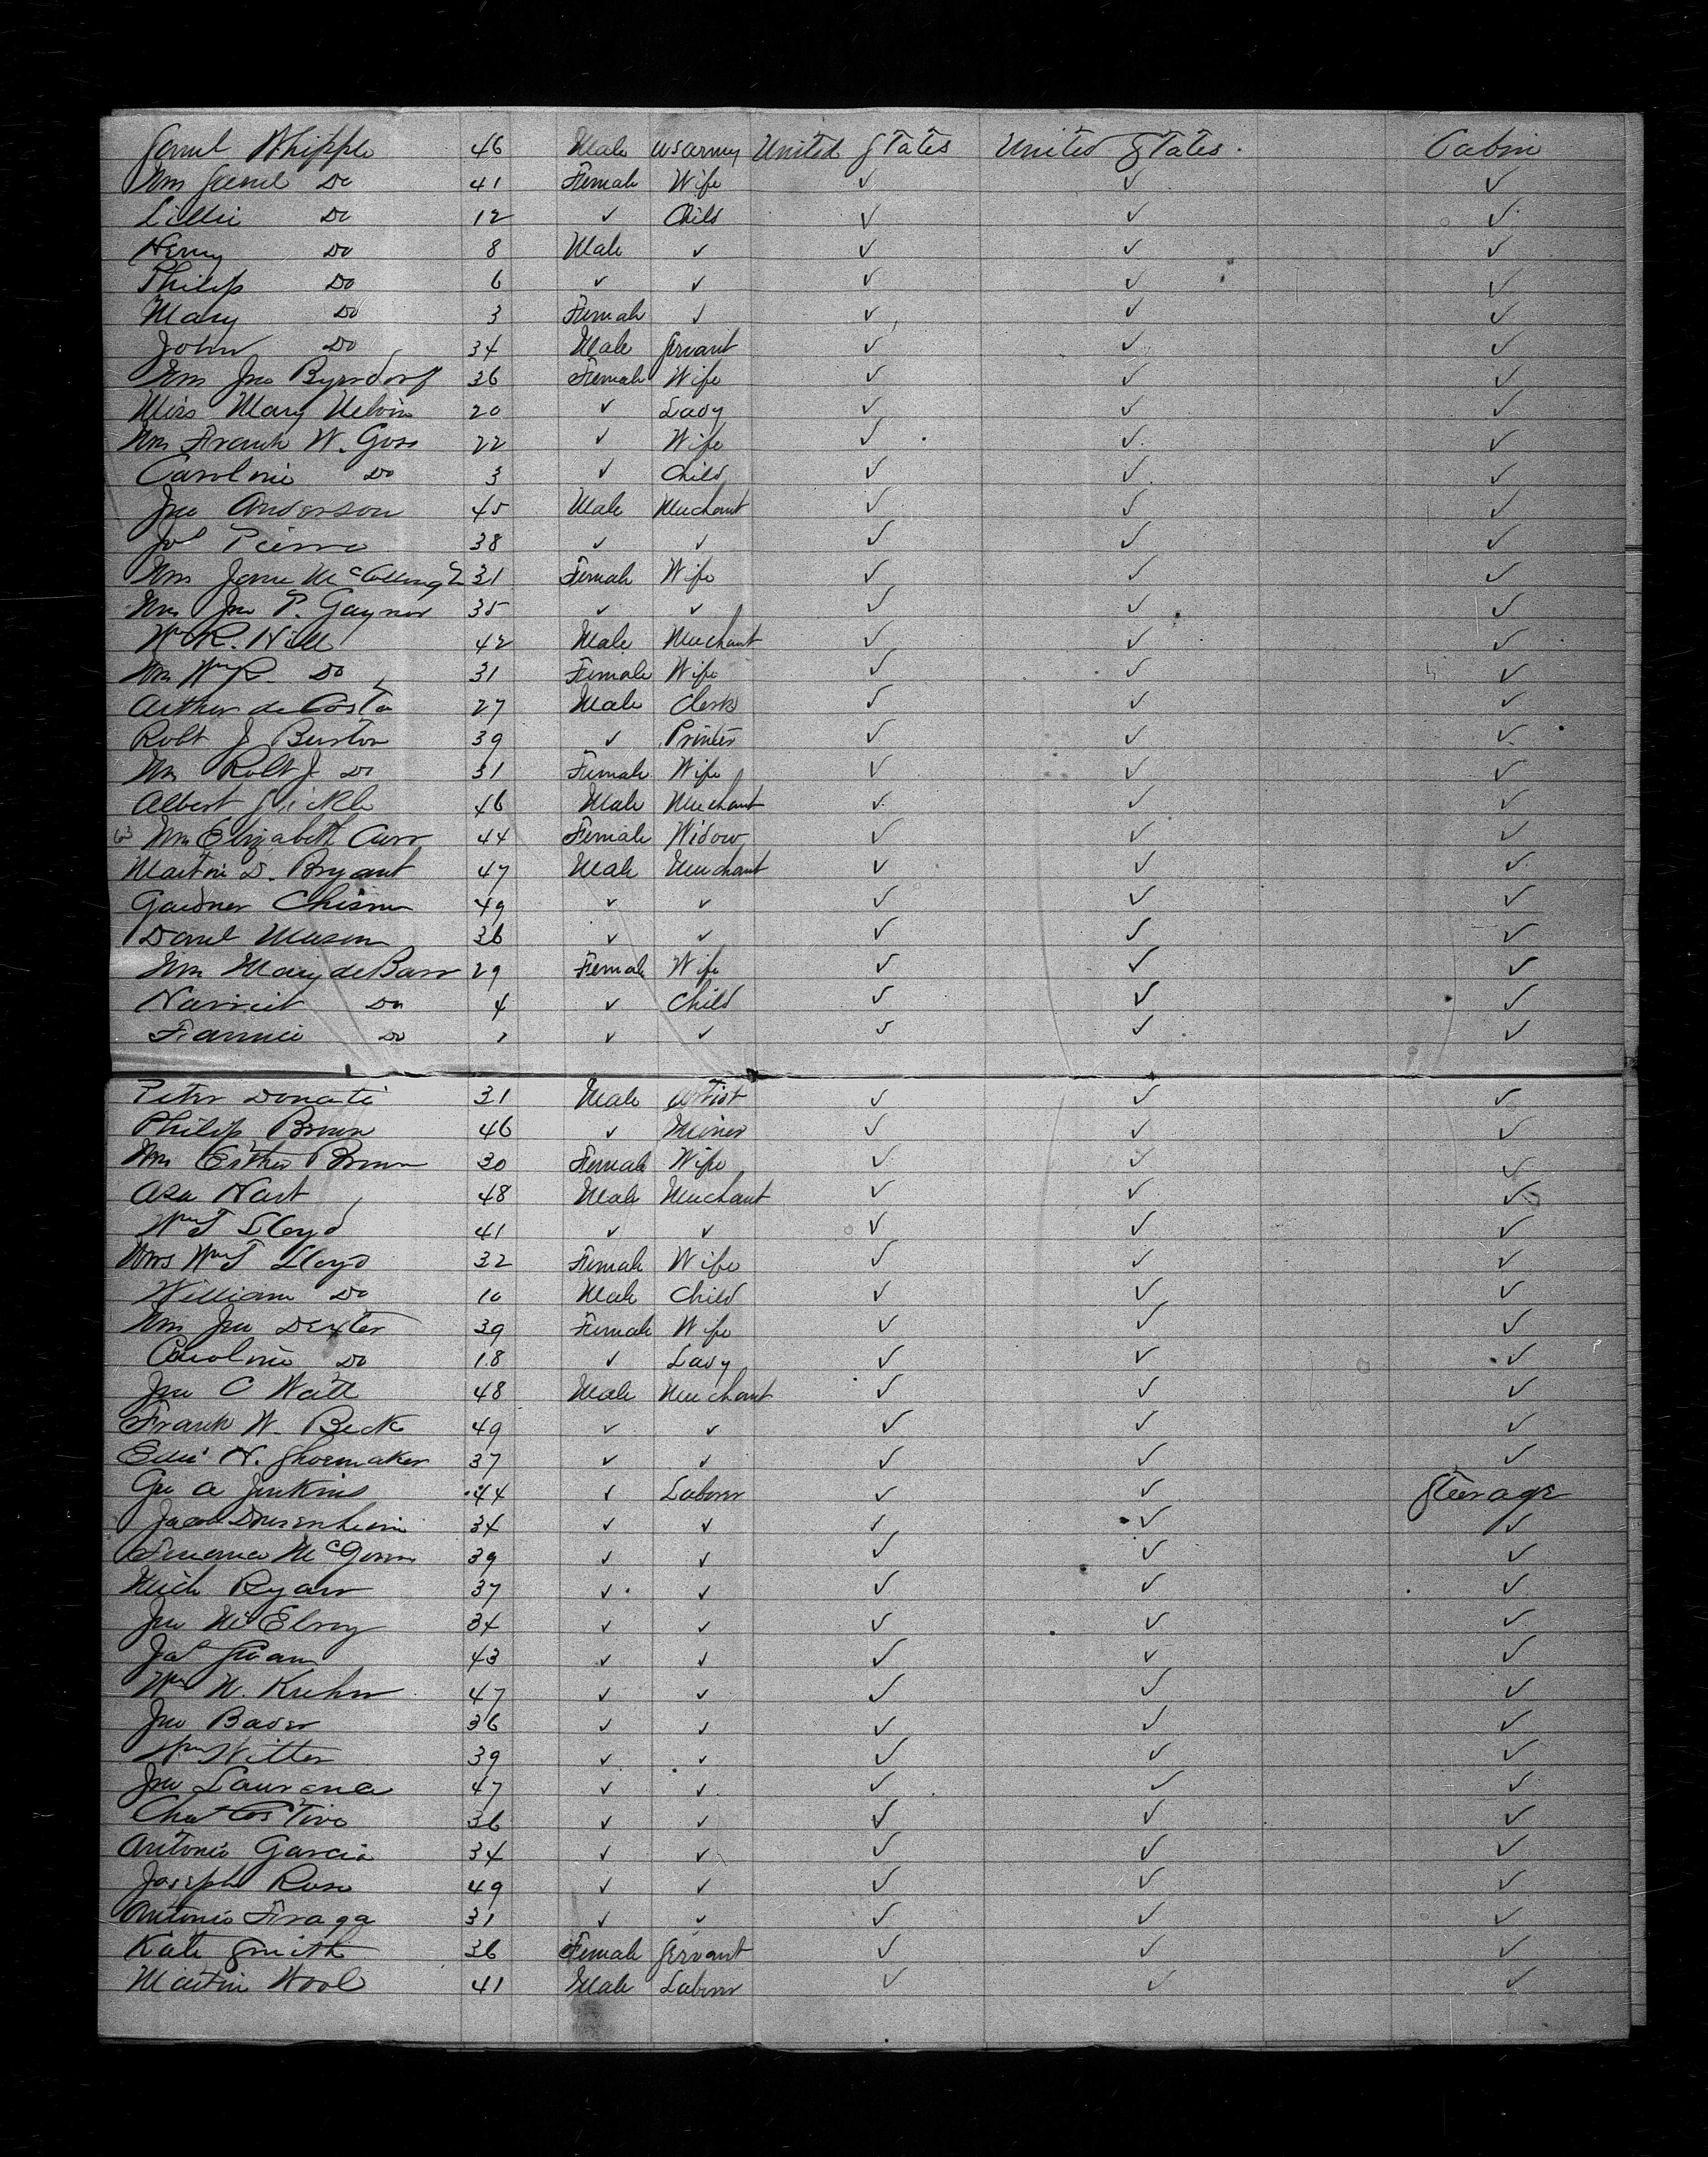 Saml Whipple 46 Male USarmy United States United States. Cabin
Mrs Saml Do 41 Female Wife ✓ ✓ ✓
Lillie Do 12 ✓ Child ✓ ✓ ✓
Henry Do 8 Male ✓ ✓ ✓ ✓
Philip Do 6 ✓ ✓ ✓ ✓ ✓
Mary Do 3 Female ✓ ✓ ✓ ✓
John Do 34 Male Servant ✓ ✓ ✓
Mrs Jno Byrsdorf 36 Female Wife ✓ ✓ ✓
Miss Mary Melvin 20 ✓ Lady ✓ ✓ ✓
Mrs Frank W. Goss 22 ✓ Wife ✓ ✓ ✓
Caroline Do 3 ✓ Child ✓ ✓ ✓
Jno Anderson 45 Male Merchant ✓ ✓ ✓
Jos Pierra 38 ✓ ✓ ✓ ✓ ✓
Mrs Jane 31 Female Wife ✓ ✓ ✓
Mrs Jno P. Gaynor 35 ✓ ✓ ✓ ✓ ✓
Wm R. Hill 42 Male Merchant ✓ ✓ ✓
Mrs Wm R Do 31 Female Wife ✓ ✓ ✓
Arthur de Costa 27 Male Clerk ✓ ✓ ✓
Robt J Burton 39 ✓ Printer ✓ ✓ ✓
Mrs Robt J Do 31 Female Wife ✓ ✓ ✓
Albert Sickle 46 Male Merchant ✓ ✓ ✓
63 Mrs Elizabeth Curr 44 Female Widow ✓ ✓ ✓
Martin D. Bryant 47 Male Merchant ✓ ✓ ✓
Gardner Chism 49 ✓ ✓ ✓ ✓ ✓
Danl Mason 36 ✓ ✓ ✓ ✓ ✓
Mrs Mary de Barr 29 Female Wife ✓ ✓ ✓
Harriet Do 4 ✓ Child ✓ ✓ ✓
Fannie Do 1 ✓ ✓ ✓ ✓ ✓
Peter Donati 31 Male Artist ✓ ✓ ✓
Philip Brown 46 ✓ Miner ✓ ✓ ✓
Mrs Esther Brown 30 Female Wife ✓ ✓ ✓
Asa Hart 48 Male Merchant ✓ ✓ ✓
Wm J Lloyd 41 ✓ ✓ ✓ ✓ ✓
Mrs Wm J Lloyd 32 Female Wife ✓ ✓ ✓
William Do 10 Male Child ✓ ✓ ✓
Mrs Jno Dexter 39 Female Wife ✓ ✓ ✓
Caroline Do 18 ✓ Lady ✓ ✓ ✓
Jno C Watt 48 Male Merchant ✓ ✓ ✓
Frank W. Beck 49 ✓ ✓ ✓ ✓ ✓
H. Shoemaker 37 ✓ ✓ ✓ ✓ ✓
Geo A Jenkins 44 ✓ Laborer ✓ ✓ Steerage
Jacob 34 ✓ ✓ ✓ ✓ ✓
Terence McGovern 39 ✓ ✓ ✓ ✓ ✓
Mich Ryan 37 ✓ ✓ ✓ ✓ ✓
Jno McElroy 34 ✓ ✓ ✓ ✓ ✓
Jas 43 ✓ ✓ ✓ ✓ ✓
Wm H. Kuhn 47 ✓ ✓ ✓ ✓ ✓
Jno Bader 36 ✓ ✓ ✓ ✓ ✓
Wm Witter 39 ✓ ✓ ✓ ✓ ✓
Jno Laurence 47 ✓ ✓ ✓ ✓ ✓
Chas 36 ✓ ✓ ✓ ✓ ✓
Antonio Garcia 34 ✓ ✓ ✓ ✓ ✓
Joseph Rose 49 ✓ ✓ ✓ ✓ ✓
Antonio Fraga 31 ✓ ✓ ✓ ✓ ✓
Kate Smith 36 Female Servant ✓ ✓ ✓
Martin Wool 41 Male Laborer ✓ ✓ ✓